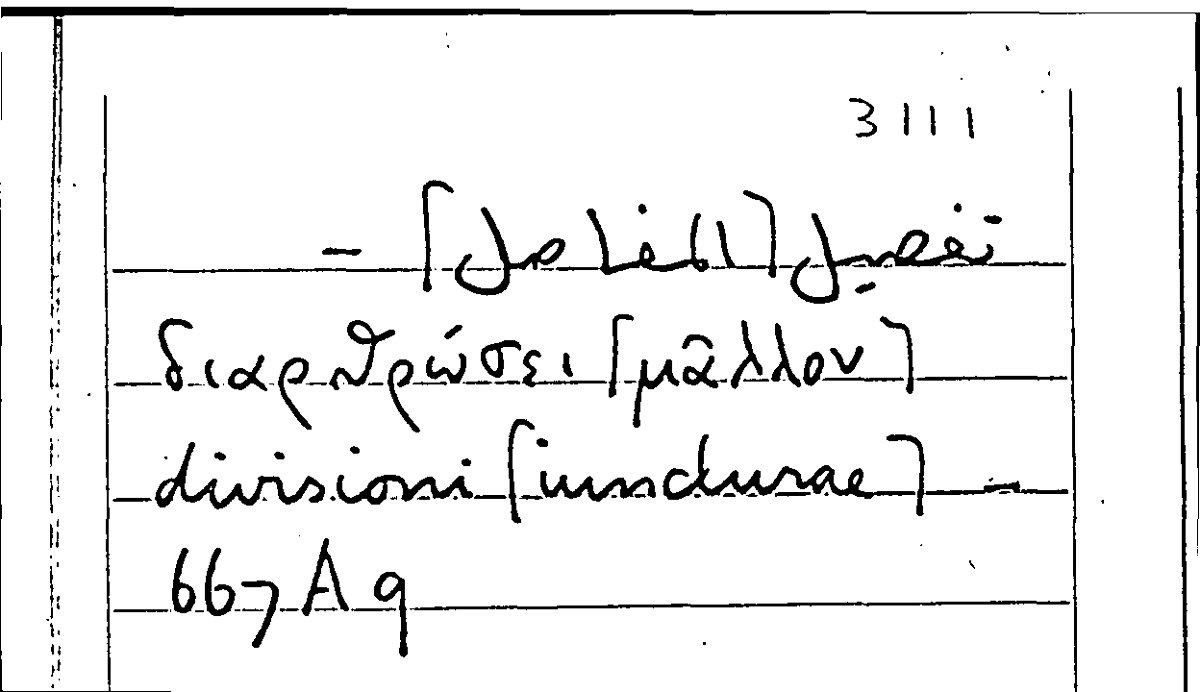 3111
διαρθρώσει [μᾶλλον]
divisioni [iuncturae] –
667 A 9